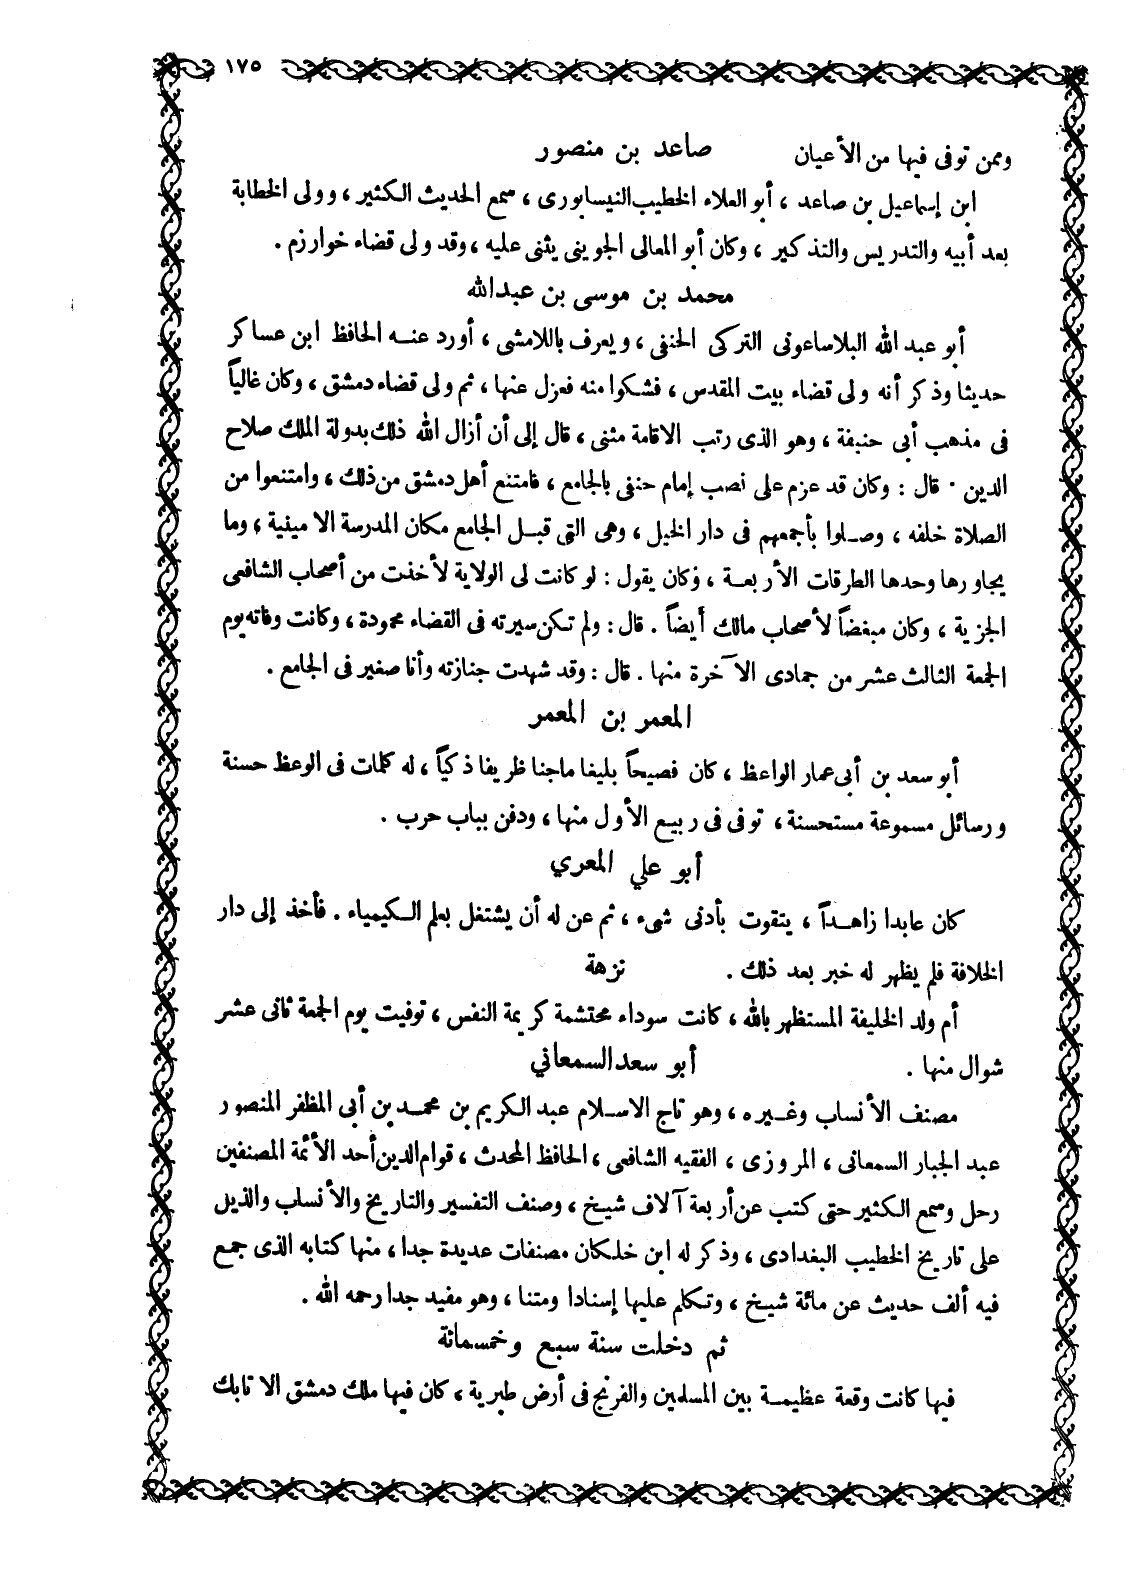 ١٧٥
وممن توفى فيها من الأعيان صاعد بن منصور
ابن إسماعيل بن صاعد ، أبو العلاء الخطيب النيسابورى ، سمع الحديث الكثير ، وولى الخطابة
بعد أبيه والتدريس والتذكير ، وكان أبو المعالى الجوينى يثنى عليه ، وقد ولى قضاء خوارزم .
محمد بن موسى بن عبدالله
أبو عبد الله البلاساعونى التركى الحنفى ، ويعرف باللامشى ، أورد عنه الحافظ ابن عساكر
حديثا وذكر أنه ولى قضاء بيت المقدس ، فشكوا منه فعزل عنها ، ثم ولى قضاء دمشق ، وكان غالياً
فى مذهب أبى حنيفة ، وهو الذى رتب الاقامة مثنى ، قال إلى أن أزال الله ذلك بدولة الملك صلاح
الدين . قال : وكان قد عزم على نصب إمام حنفى بالجامع ، فامتنع أهل دمشق من ذلك ، وامتنعوا من
الصلاة خلفه ، وصلوا بأجمعهم فى دار الخيل ، وهى التى قبل الجامع مكان المدرسة الامينية ، وما
يجاورها وحدها الطرقات الأربعة ، وكان يقول : لو كانت لى الولاية لأخذت من أصحاب الشافعى
الجزية ، وكان مبغضاً لأصحاب مالك أيضاً . قال : ولم تكن سيرته فى القضاء محمودة ، وكانت وفاته يوم
الجمعة الثالث عشر من جمادى الآخرة منها . قال : وقد شهدت جنازته وأنا صغير فى الجامع .
المعمر بن المعمر
أبو سعد بن أبى عمار الواعظ ، كان فصيحاً بليغا ماجنا ظريفا ذكياً ، له كلمات فى الوعظ حسنة
ورسائل مسموعة مستحسنة ، توفى فى ربيع الأول منها ، ودفن بباب حرب .
أبو علي المعري
كان عابدا زاهداً ، يتقوت بأدنى شىء ، ثم عن له أن يشتغل بعلم الكيمياء . فأخذ إلى دار
الخلافة فلم يظهر له خبر بعد ذلك . نزهة
أم ولد الخليفة المستظهر بالله ، كانت سوداء محتشمة كريمة النفس ، توفيت يوم الجمعة ثانى عشر
شوال منها . أبو سعد السمعاني
مصنف الأنساب وغيره ، وهو تاج الاسلام عبد الكريم بن محمد بن أبى المظفر المنصور
عبد الجبار السمعانى ، المروزى ، الفقيه الشافعى ، الحافظ المحدث ، قوام الدين أحد الأئمة المصنفين
رحل وسمع الكثير حتى كتب عن أربعة آلاف شيخ ، وصنف التفسير والتاريخ والأنساب والذيل
على تاريخ الخطيب البغدادى ، وذكر له ابن خلكان مصنفات عديدة جدا ، منها كتابه الذى جمع
فيه ألف حديث عن مائة شيخ ، وتكلم عليها إسنادا ومتنا ، وهو مفيد جدا رحمه الله .
ثم دخلت سنة سبع وخمسمائة
فيها كانت وقعة عظيمة بين المسلمين والفرنج فى أرض طبرية ، كان فيها ملك دمشق الاتابك